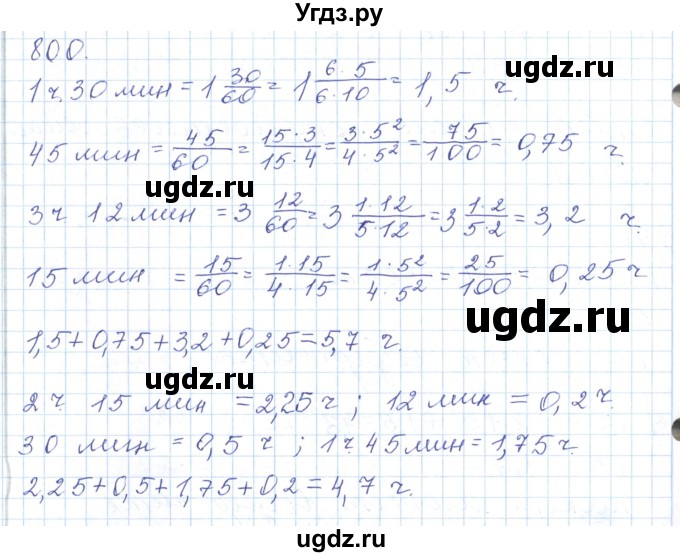 Угдз.ру
800.
1 ч. 30 мин = 1 30/60 = 1 6·5/6·10 = 1,5 ч.
45 мин = 45/60 = 15·3/15·4 = 3·5²/4·5² = 75/100 = 0,75 ч.
ugdz.ru ugdz.ru
3 ч 12 мин = 3 12/60 = 3 1·12/5·12 = 3 1·2/5·2 = 3,2 ч.
15 мин = 15/60 = 1·15/4·15 = 1·5²/4·5² = 25/100 = 0,25 ч
ugdz.ru
1,5+0,75+3,2+0,25=5,7 ч.
ugdz.ru ugdz.ru
2 ч. 15 мин = 2,25 ч ; 12 мин = 0,2 ч.
30 мин = 0,5 ч ; 1 ч 45 мин = 1,75 ч.
2,25+0,5+1,75+0,2=4,7 ч.
ugdz.ru ugdz.ru
Угдз.ру